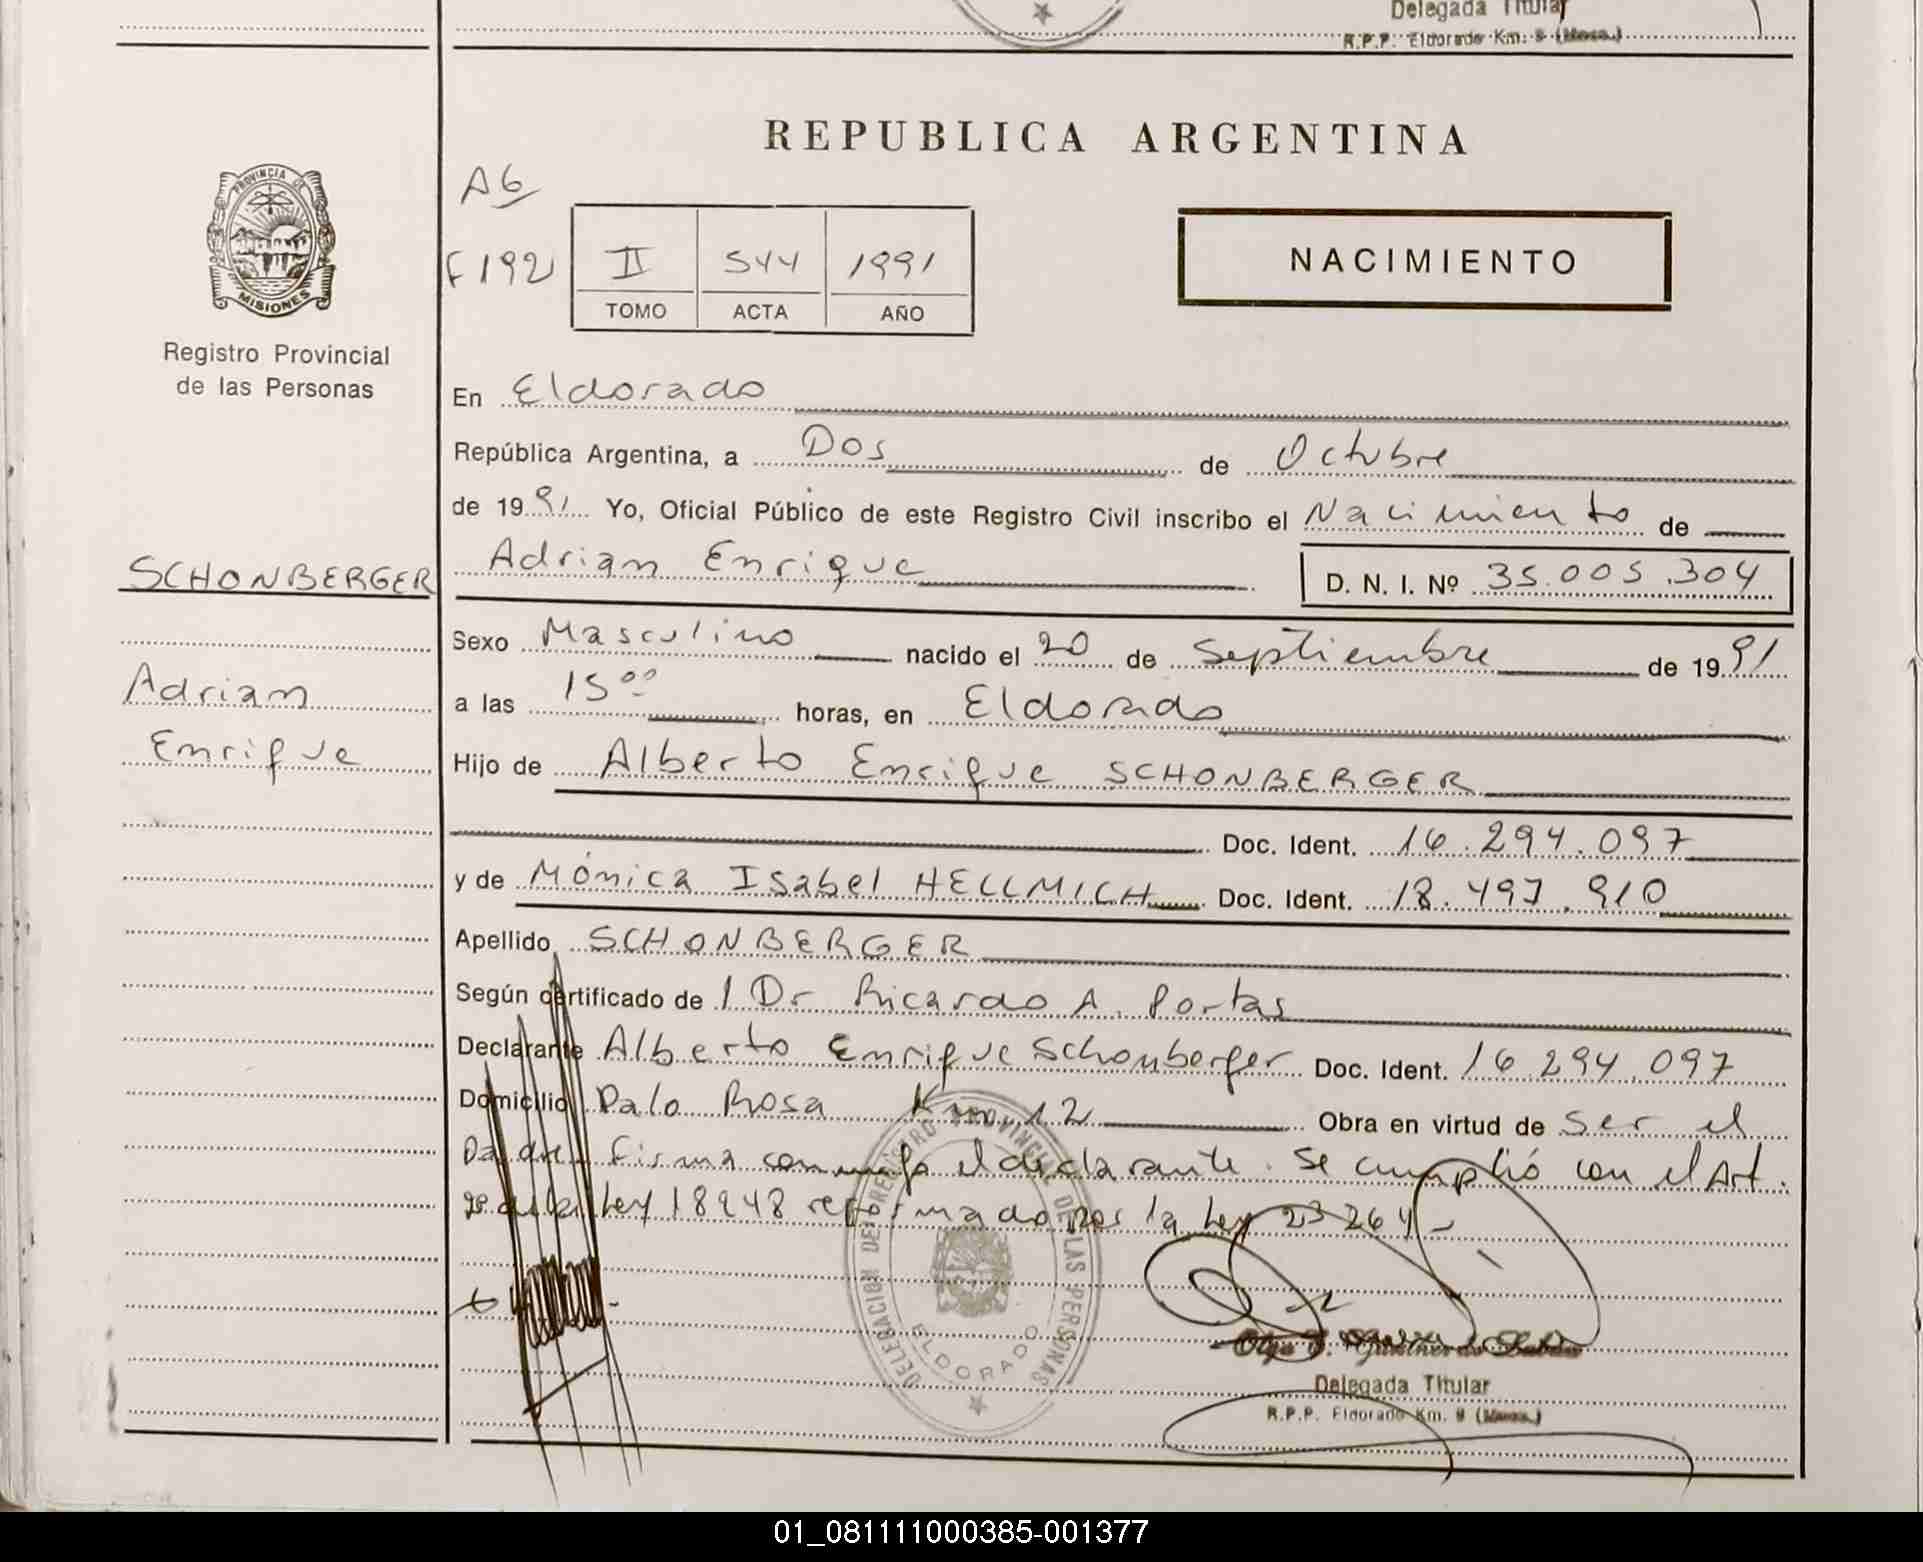 Delegada Titular
R.P.P. Eldorado Km. 9 (Mnes.)
REPUBLICA ARGENTINA
PROVINCIA DE
MISIONES
Registro Provincial
de las Personas
A6
F 192
II 544 1991
TOMO ACTA AÑO
NACIMIENTO
En Eldorado
República Argentina, a Dos de Octubre
de 1991 Yo, Oficial Público de este Registro Civil inscribo el Nacimiento de
SCHONBERGER
Adrian Enrique D. N. I. Nº 35.005.304
Sexo Masculino nacido el 20 de Septiembre de 1991
Adrian
a las 15ºº horas, en Eldorado
Enrique
Hijo de Alberto Enrique SCHONBERGER
Doc. Ident. 16.294.097
y de Mónica Isabel HELLMICH Doc. Ident. 18.497.910
Apellido SCHONBERGER
Según certificado de l Dr Ricardo A. Portas
Declarante Alberto Enrique Schonberger Doc. Ident. 16.294.097
Domicilio Palo Rosa Km 12 Obra en virtud de Ser el
Padre. Firma conmigo el declarante. Se cumplió con el Art.
de la Ley 18248 reformado por la Ley 23264-
DELEGACION DEL REGISTRO PROVINCIAL DE LAS PERSONAS
ELDORADO
Delegada Titular
R.P.P. Eldorado Km. 9 (Mnes.)
01_081111000385-001377